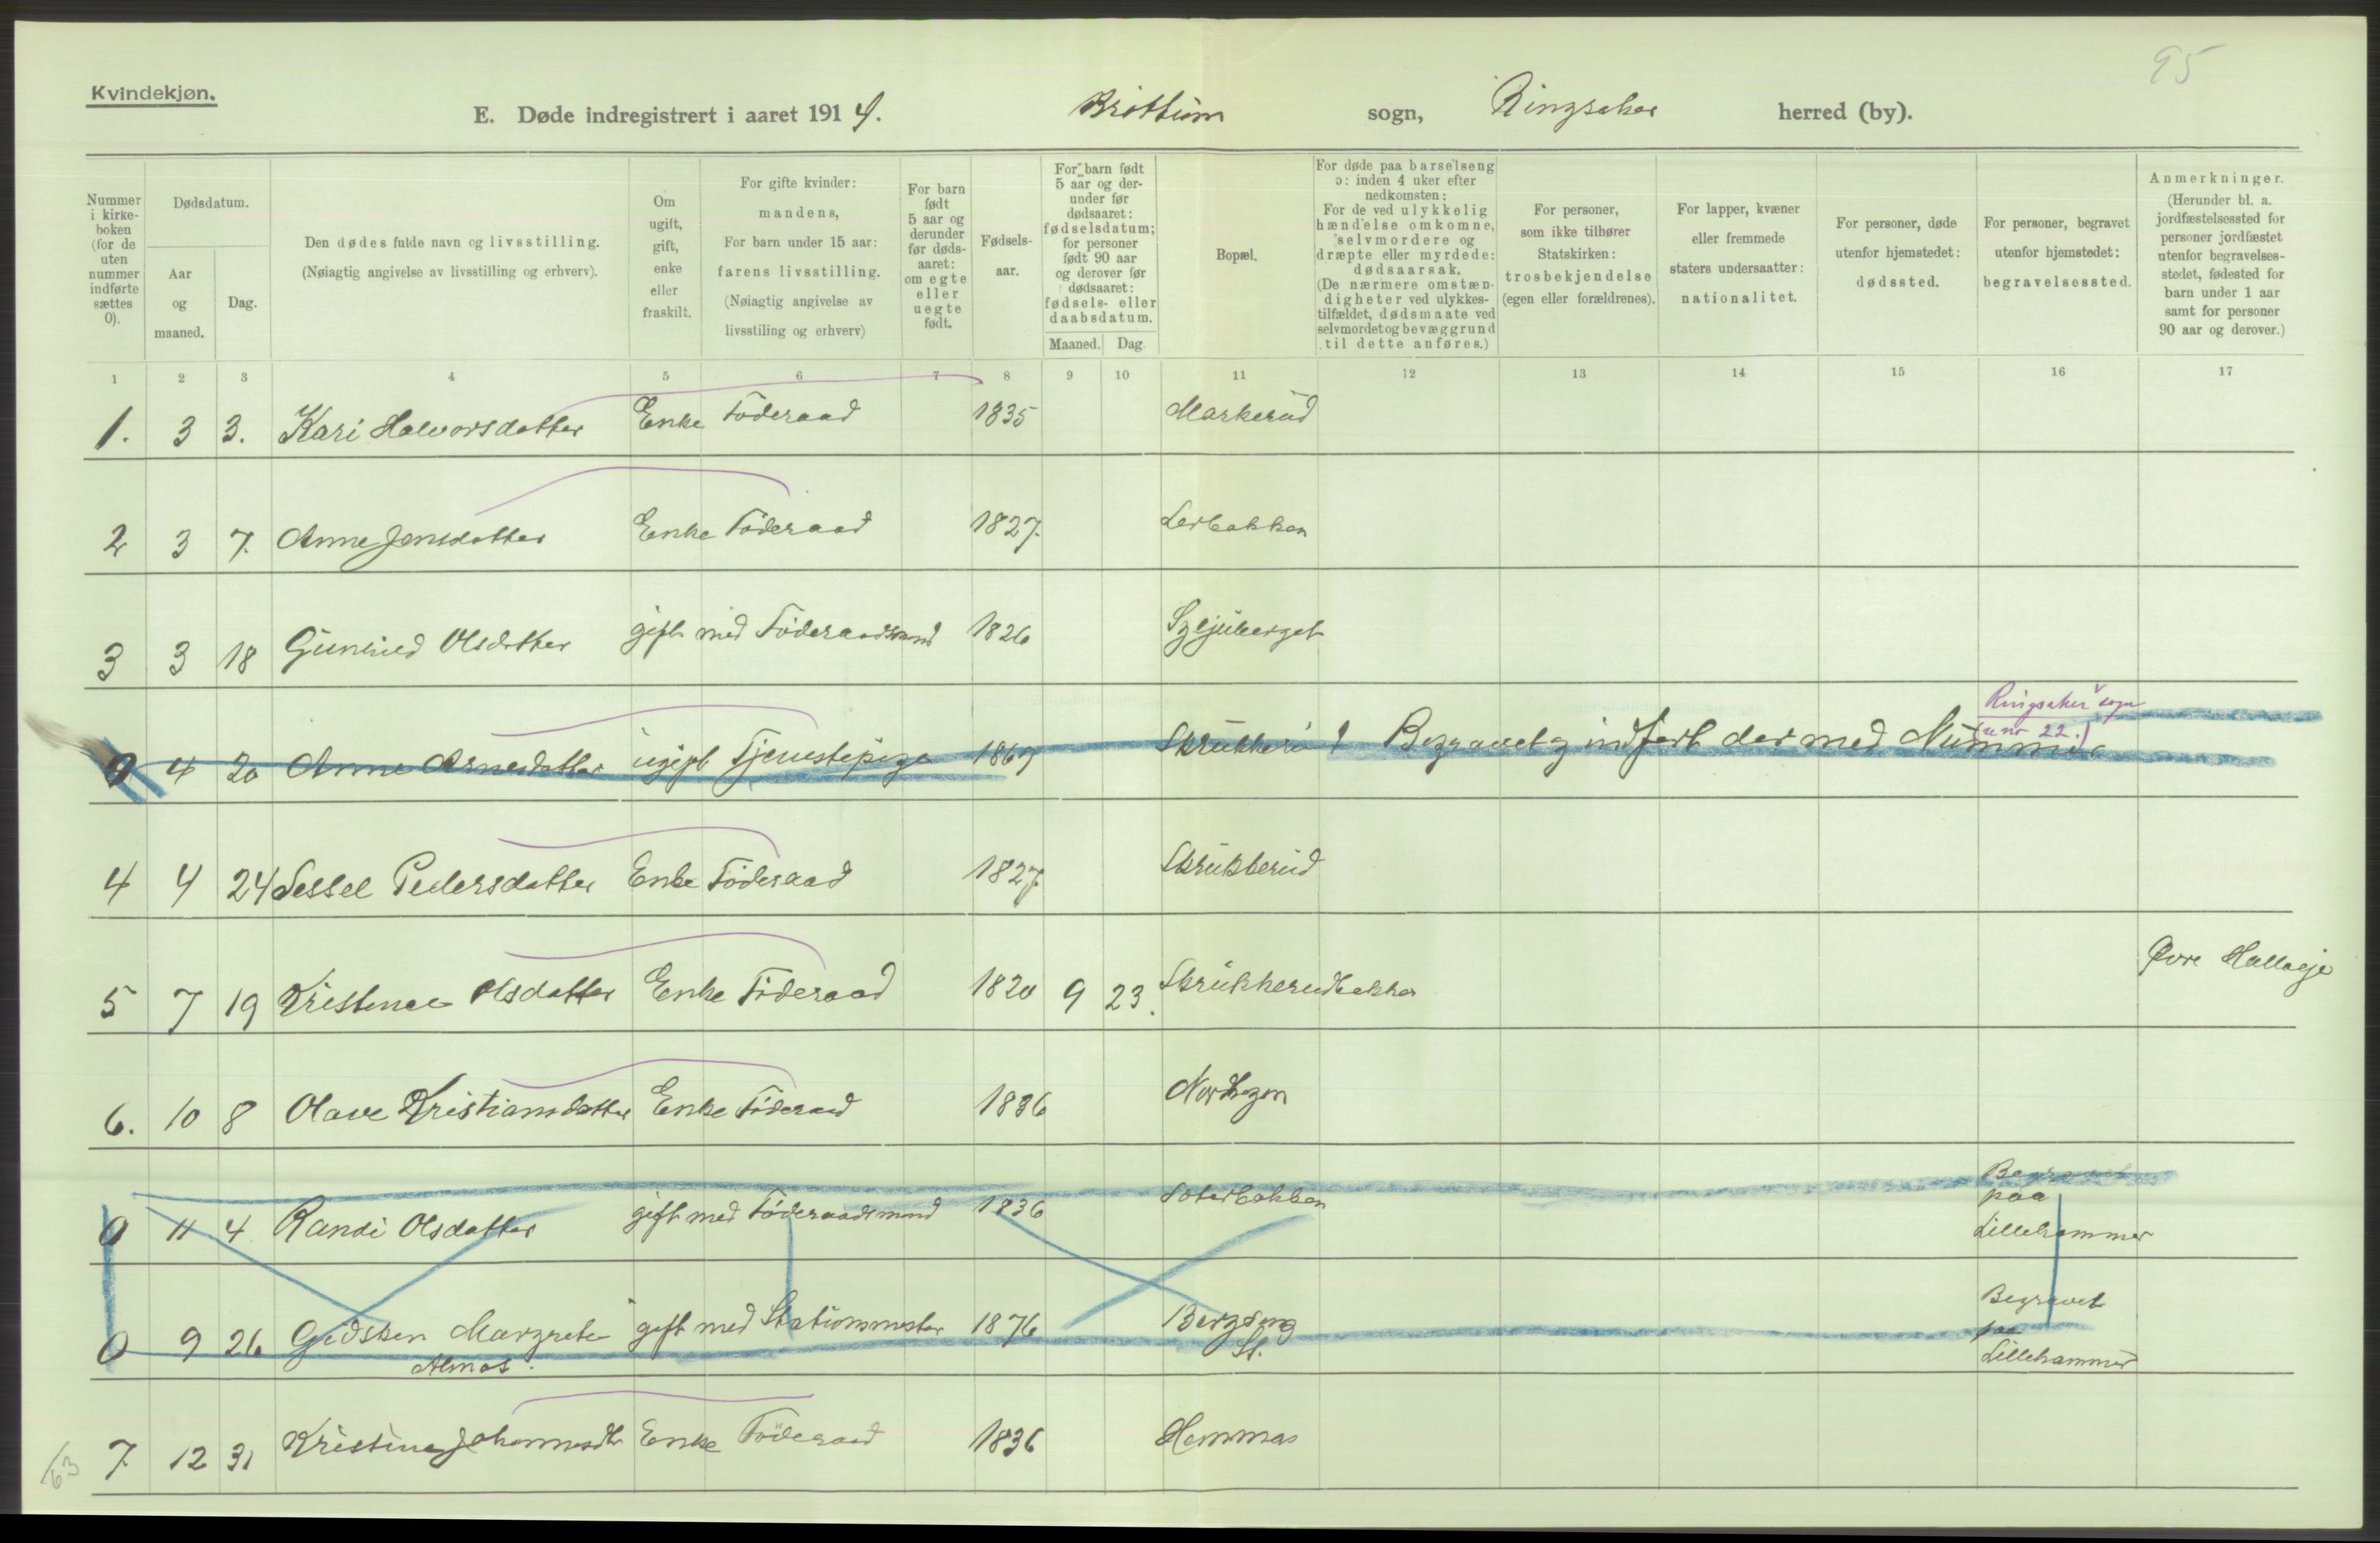 95
Kvindekjøn.
E. Døde indregistrert i aaret 1914. Brøttum sogn, Ringsaker herred (by).
Nummer i kirkeboken (for de uten nummer indførte sættes 0).
Dødsdatum.
Aar og maaned.
Dag.
Den dødes fulde navn og livsstilling.
(Nøiagtig angivelse av livsstilling og erhverv).
Om ugift, gift, enke eller fraskilt.
For gifte kvinder:
mandens,
For barn under 15 aar:
farens livsstilling.
(Nøiagtig angivelse av
livsstiling og erhverv)
For barn født 5 aar og derunder før dødsaaret: om egte eller uegte født.
Fødselsaar.
For barn født 5 aar og derunder før dødsaaret: fødselsdatum; for personer født 90 aar og derover før dødsaaret: fødsels- eller daabsdatum.
Maaned. Dag.
Bopæl.
For døde paa barselseng ɔ: inden 4 uker efter nedkomsten:
For de ved ulykkelig hændelse omkomne, selvmordere og dræpte eller myrdede: dødsaarsak.
(De nærmere omstændigheter ved ulykkestilfældet, dødsmaate ved selvmordet og bevæggrund til dette anføres.)
For personer, som ikke tilhører Statskirken: trosbekjendelse (egen eller forældrenes).
For lapper, kvæner eller fremmede staters undersaatter: nationalitet.
For personer, døde utenfor hjemstedet: dødssted.
For personer, begravet utenfor hjemstedet: begravelsessted.
Anmerkninger.
(Herunder bl. a. jordfæstelsessted for personer jordfæstet utenfor begravelsesstedet, fødested for barn under 1 aar samt for personer 90 aar og derover.)
1 2 3 4 5 6 7 8 9 10 11 12 13 14 15 16 17
1. 3 3. Kari Halvorsdatter Enke Föderaad 1835 Markerud
2 3 7. Anne Jensdatter Enke Föderaad 1827. Lerbakken
3 3 18 Gunhild Olsdatter gift med Föderaadsmand 1826
Ringsaker sogn
(u nr 22.)
0 4 20 Anne Arnesdatter ugift Tjenestepige 1869 Skrukkerud Begravet og indført der med Nummer
4 4 24 Sessel Pedersdatter Enke Föderaad 1827. Skrukkerud
5 7 19 Olsdatter Enke Föderaad 1820 9 23. Skrukkerudbakken Øvre
6. 10 8 Olave Kristiansdatter Enke Föderaad 1836 Nordhagen
0 11 4 Randi Olsdatter gift med Föderaadsmand 1836 Begravet
paa
Lillehammer
0 9 26 Gidsken Margrete gift med Stationsmester 1876 Bergseng
St.
Begravet
paa
Lillehammer
7. 12 31 Kristine Johannesdtr Enke Föderaad 1836 Hemmas
63